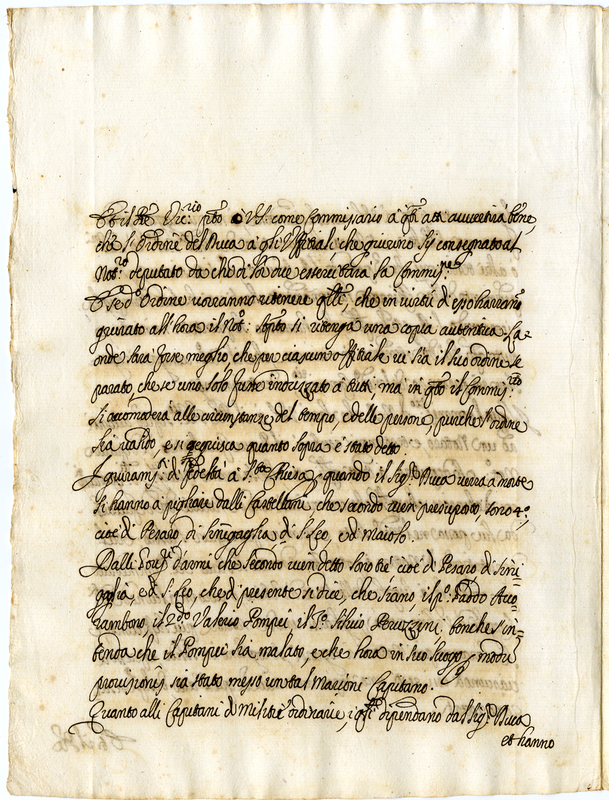 Et il Vic.rio p.to ò V.S. come Commissario à q.sti atti avvertirà bene,
che l'Ordine del Duca à gli Uffitiali, che giurino sij consegnato al
Not.ro deputato da che di lor due essercitarà la Commis.ne
E se d.o Ordine vorranno ritenere q.lli, che in virtù di esso havranno
giurato all'hora il Not.o sop.to si ritenga una copia autentica. La-
onde sarà forse meglio che per ciascun offitiale vi sia il suo ordine se
parato, che se uno solo fusse indrizzato à tutti, ma in q.sto il Commis.rio
si accomoderà alle circumstanze del tempo, e delle persone, purche l'ordine
sia valido, e si eseguisca quanto sopra è stato detto.
I giuram.ti di fedeltà à S.ta Chiesa, quando il Sig.r Duca verrà a morte
si hanno à pigliare dalli Castellani, che secondo vien presuposto, sono 4.o,
cioè di Pesaro di Sinigaglia di S. Leo, e di Maiolo.
Dalli d'armi che secondo vien detto sono tre cioè di Pesaro di Sini-
gaglia, e d S. Leo, che di presente si dice, che siano, il p.o Pardo Avo-
gambono, il 2.do Valerio Pompei il 3.o Silvio Peruzzini, benche s'in-
tenda che il Pompei sia malato, e che hora in suo luogo per modo
provisione sia stato messo un tal Marione Capitano.
Quanto alli Capitani di Militie ordinarie, i q.li dipendano dal Sig.r Duca
et hanno